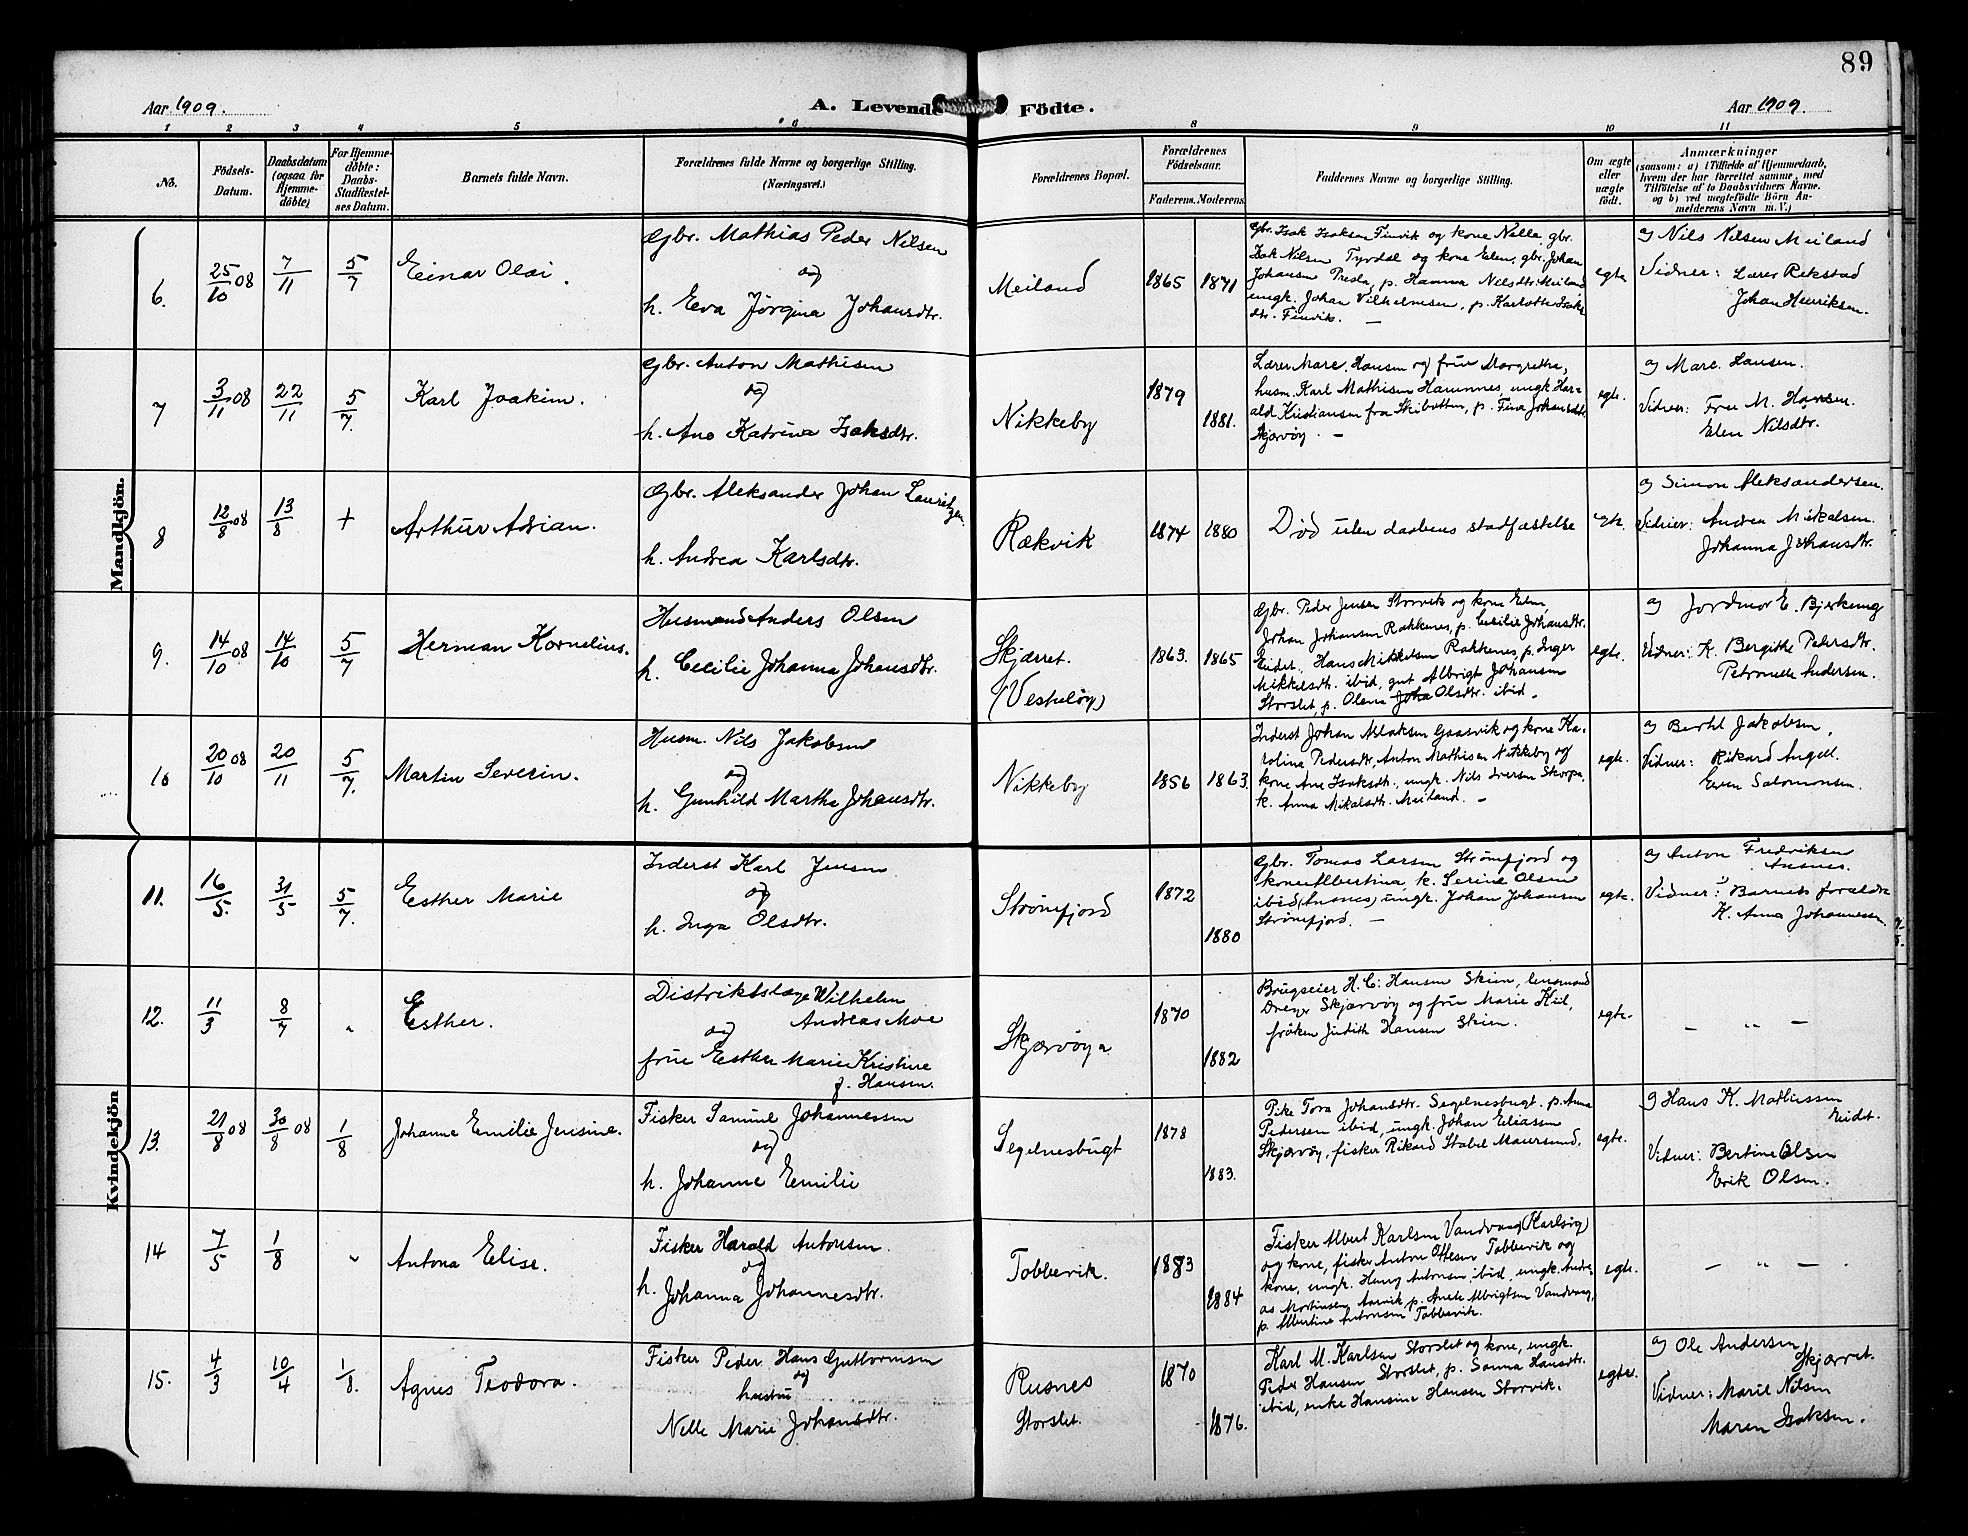 89
Aar 1909.
A. Levende Födte.
Aar 1909.
1 2 3 4 5 6 8 9 10 11
No.
Födsels-Datum.
Daabsdatum (ogsaa for Hjemme-döbte)
For Hjemme-döbte: Daabs-Stadfæstel-ses Datum.
Barnets fulde Navn.
Forældrenes fulde Navne og borgerlige Stilling. (Næringsvei.)
Forældrenes Bopæl.
Forældrenes Födselsaar.
Faderens. Moderens.
Faddernes Navne og borgerlige Stilling.
Om ægte eller uægte födt.
Anmærkninger
(saasom: a) i Tilfælde af Hjemmedaab,
hvem der har forrettet samme, med
Tilföielse af to Daabsvidners Navne.
og b) ved uægtefödte Börn An-
melderens Navn m. V.)
Mandkjön.
6.
25/10 08
7/11
5/7
Einar Olai.
Gbr. Mathias Peder Nilsen
og
h. Eva Jørgina Johansdtr.
Meiland
1865
1871
Gbr. Isak Isaksen Finvik og kone Nelle, gbr.
Isak Nilsen Tyrdal og kone Elen, gbr. Johan
Johansen Presla, p. Hanna Nilsdtr. Meiland
ungk. Johan Vilhelmsen, p. Karlotte Isaks
dtr. Finvik. —
egte
a) Nils Nilsen Meiland
Vidner: Lærer Rekstad
Johan Henriksen.
7
3/11 08
22/11
5/7.
Karl Joakim.
Gbr. Anton Mathisen
og
h. Ane Katrina Isaksdtr.
Nikkeby
1879
1881.
Lærer Marc. Hansen og frue Margrethe,
husm. Karl Mathisen Hamnnes, ungk. Har-
ald Kristiansen fra Skibotten, p. Fina Johansdtr.
Skjærvöy. —
egte.
a) Marc. Hansen.
Vidner: Fru M. Hansen.
Elen Nilsdtr.
8
12/8 08
13/8
+
Arthur Adrian.
Gbr. Aleksander Johan Lauritzen.
h. Andrea Karlsdtr.
Rækvik
1874
1880
Död uden daabens stadfæstelse
egte.
a) Simon Aleksandersen.
Vidner: Andrea Mikalsen.
Johanna Johansdtr.
9.
14/10 08
14/10
5/7
Herman Kornelius.
Husmand Anders Olsen
h. Cecilie Johanna Johansdtr.
Skjærret.
(Vesteröy)
1863.
1865
Gbr. Peder Jensen Storvik og kone Elen,
Johan Johansen Rakkenes, p. Cecilie Johansdtr.
Eidet, Hans Mikkelsen Rakkenes, p. Inger
Mikkelsdtr. ibid, gut Albrigt Johansen
Storslet, p. Olena Joha Olsdtr. ibid.
egte.
a) Jordmor E. Bjerkeng
Vidner: K. Bergitte Petersdtr.
Petronelle Andersen.
10
20/10 08
20/11
5/7.
Martin Severin.
Husm. Nils Jakobsen
og
h. Gunhild Martha Johansdtr.
Nikkeby
1856
1863.
Inderst Johan Aslaksen Gaasvik og kone Ka-
rolina Pedersdtr, Anton Mathisen Nikkeby og
kone Ane Isaksdtr., ungk. Nils Iversen Skorpa,
k. Anna Mikalsdtr. Meiland. —
egte.
a) Berthl Jakobsen,
Vidner: Rikard Angell.
Even Salomonsen.
Kvindekjön
11.
16/5.
31/5
5/7.
Esther Marie
Inderst Karl Jensen
og
h. Inga Olsdtr.
Strömfjord
1872
1880
Gbr. Tomas Larsen Strömfjord og
kone Albertina, k. Serine Olsen
ibid (Ansnes), ungk. Johan Johansen
Strömfjord. —
egte.
a) Anton Fredriksen
Ansnes.
Vidner: Barnets forældre
K. Anna Johannessen
12.
11/3
8/7
"
Esther.
Distriktslæge Wilhelm
Andreas Moe
og
frue Esther Marie Kristine
f. Hansen.
Skjærvöya
1870
1882
Brugseier H. C. Hansen Skien, lensmand
Dreyer Skjærvöy og frue Marie Kiil,
fröken Judith Hansen Skien.
egte.
— " —
13.
21/8 08
30/8 08
1/8
Johanne Emilie Jensine.
Fisker Samuel Johannessen
og
h. Johanne Emilie
Segelnesbugt
1878
1883.
Pike Tora Johansdtr. Segelnesbugt, p. Anna
Pedersen ibid, ungk. Johan Eliassen
Skjærvöy, fisker Rikard Stabel Maursund.
egte.
a) Hans K. Mathiassen
Eidet.
Vidner: Bertine Olsen
Erik Olsen.
14
7/5
1/8
"
Antona Elise.
Fisker Harald Antonsen.
og
h. Johanna Johannesdtr.
Tobbevik.
1883
1884
Fisker Albert Karlsen Vandvaag (Karlsöy)
og kone, fisker Anton Ottesen Tobbevik og
kone, ungk. Henry Antonsen ibid, ungk. Andre-
as Mortinsen Aarvik, p. Anete Albrigtsen Vandvaag,
p. Albertine Antonsen Tobbevik.
egte.
— " — .
15.
4/3
10/4
1/8.
Agnes Teodora.
Fisker Peder Hans Guttormsen
og
hustru
Nelle Marie Johansdtr.
Rusnes
Storslet.
1870
1876.
Karl M. Karlsen Storslet og kone, ungk.
Peder Hansen Storslet, p. Sanna Hansdtr.
ibid, enke Hansine Hansen Storvik.
egte.
a) Ole Andersen
Skjærret.
Vidner: Marie Nilsen
Maren Isaksen.